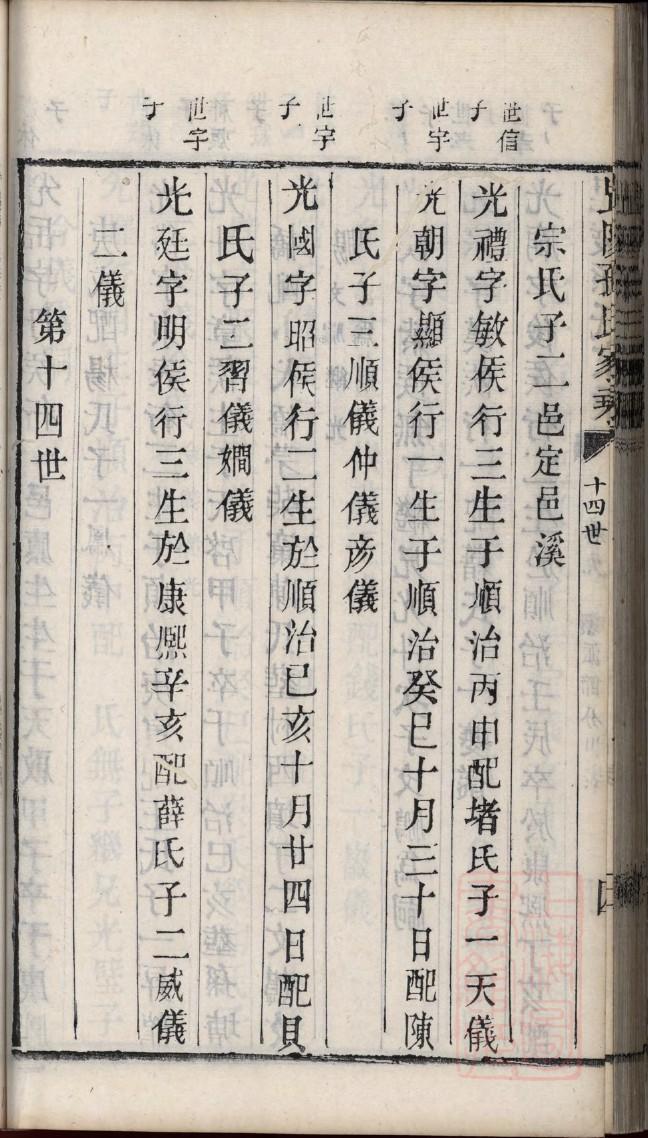 孫氏家乘
十四世
宗氏子二邑定邑溪
世信子
光禮字敏侯行三生于順治丙申配堵氏子一天儀
世宇子
光朝字顯侯行一生于順治癸巳十月三十日配陳
氏子三順儀仲儀彥儀
世宇子
光國字昭侯行二生於順治己亥十月廿四日配貝
氏子二習儀嫺儀
世宇子
光廷字明侯行三生於康熙辛亥配薛氏子二威儀
二儀
第十四世